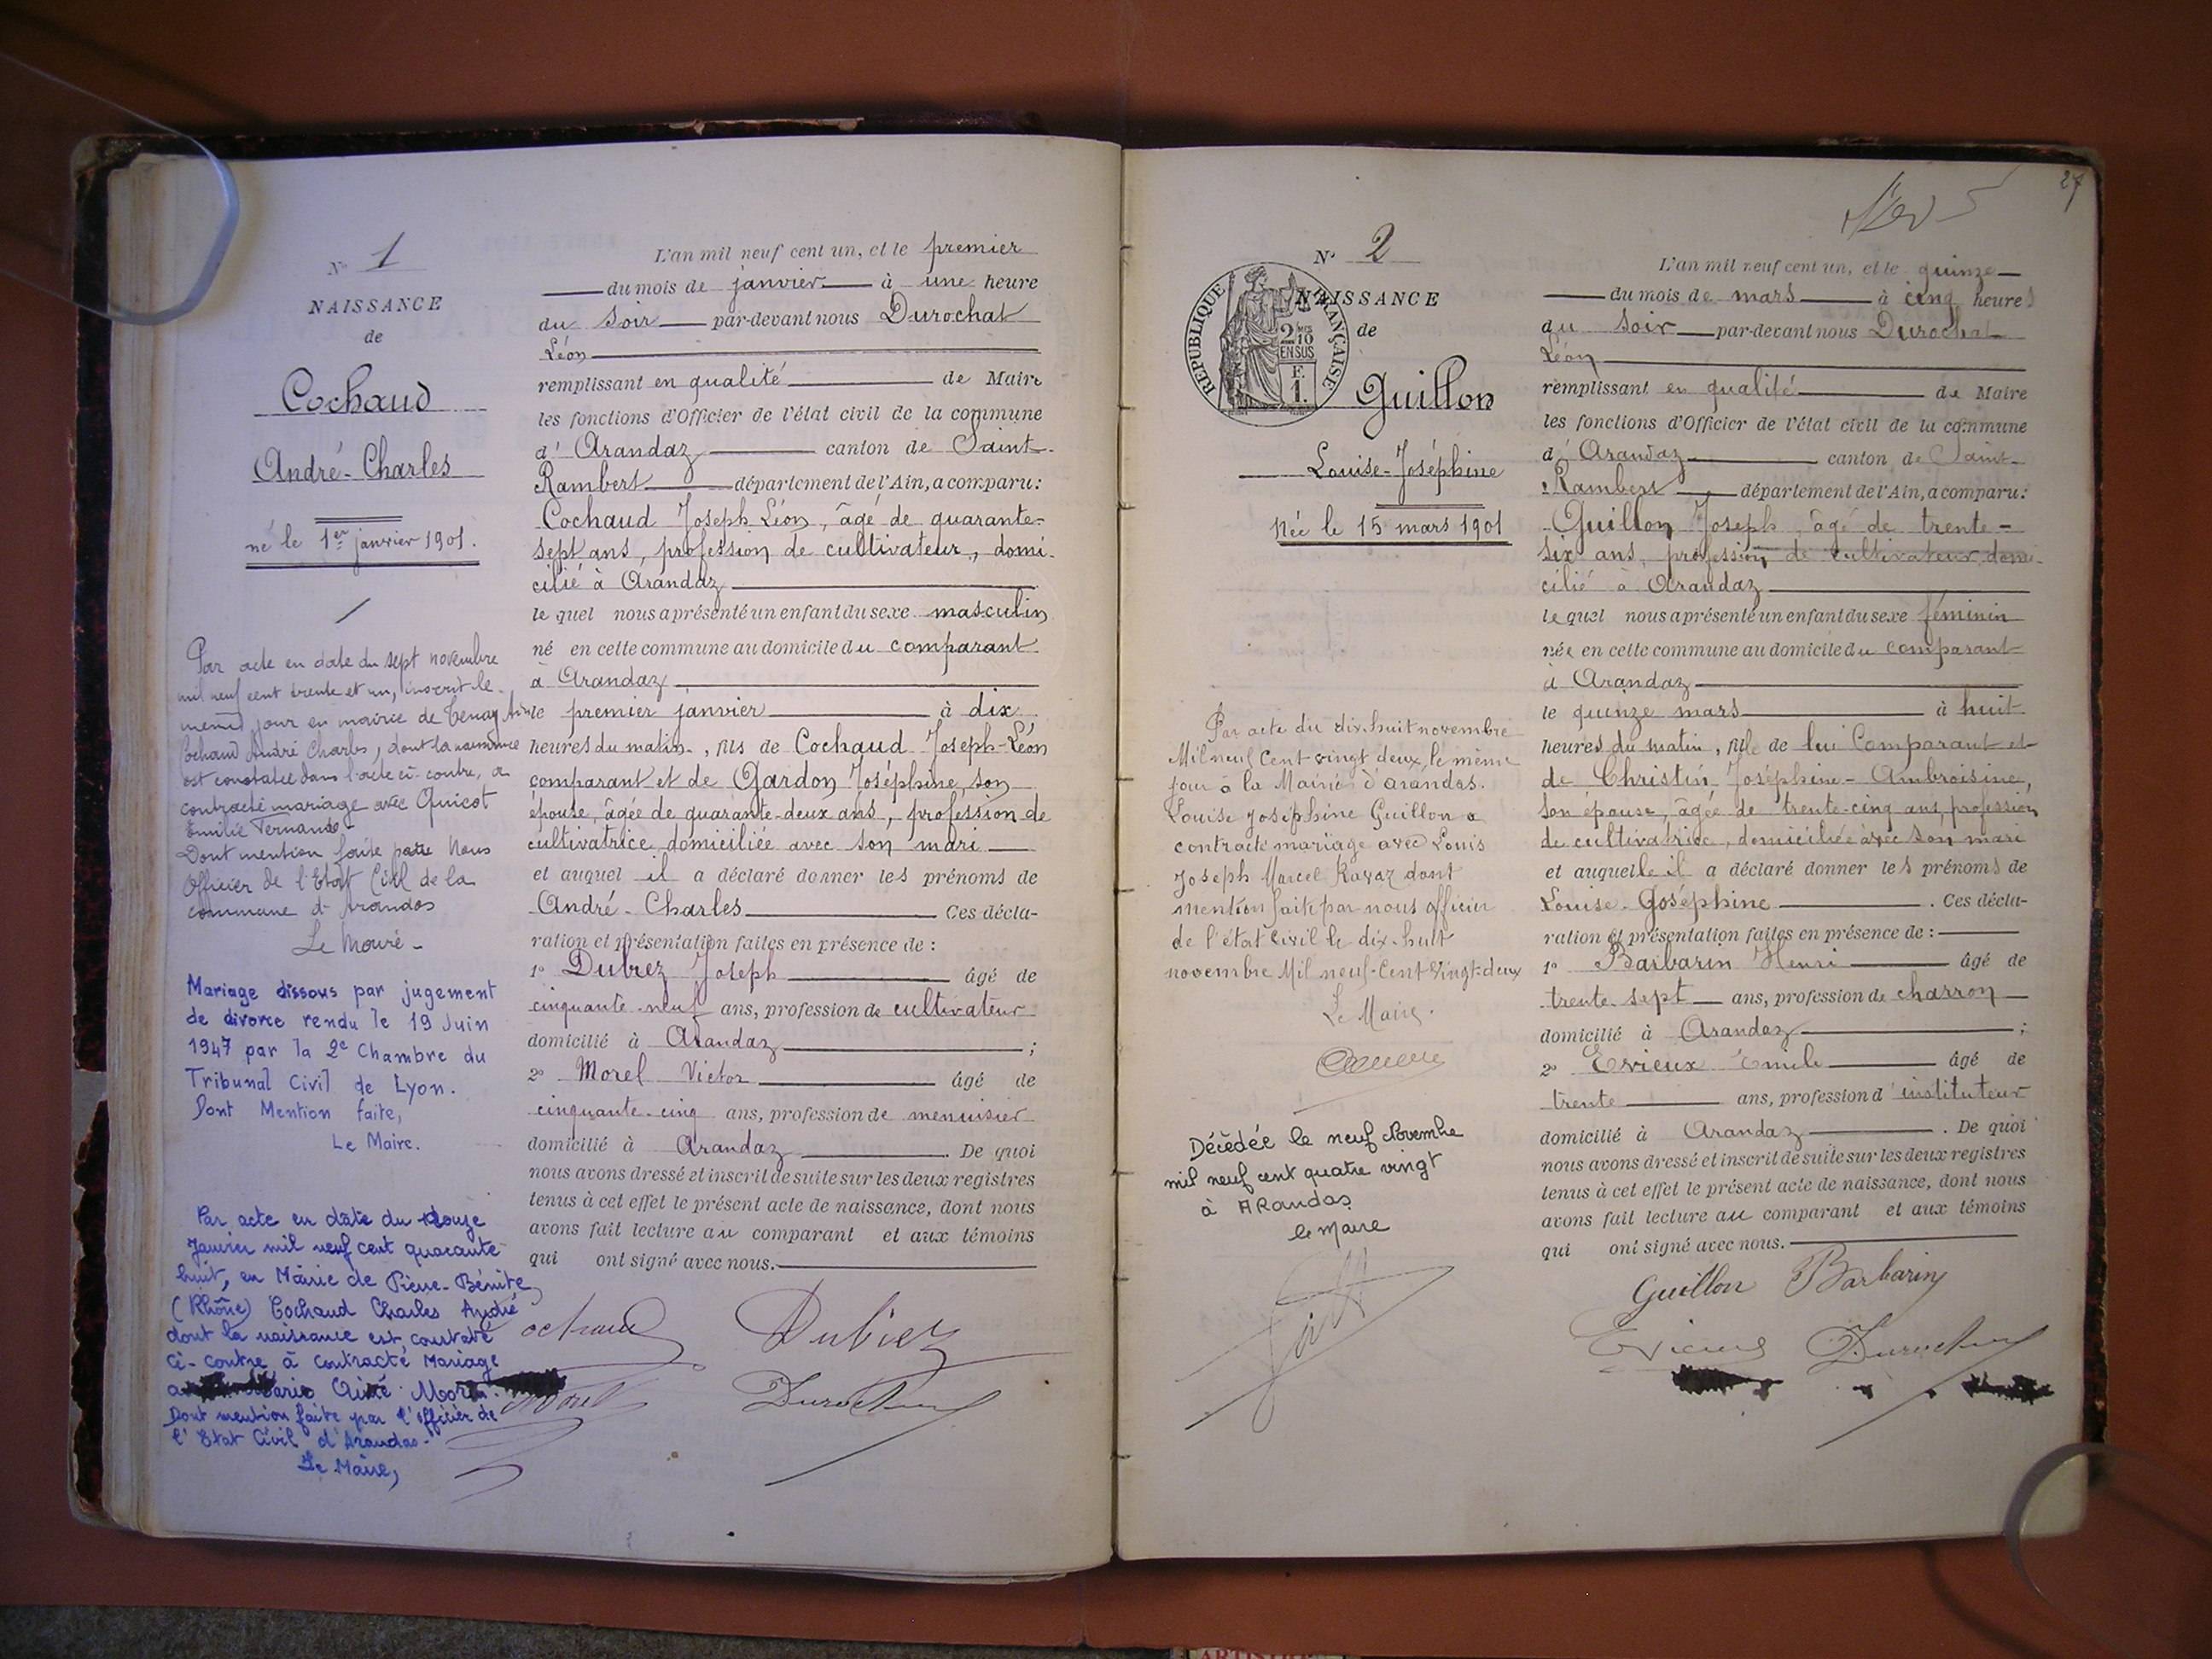 N° 1
NAISSANCE
de
Cochaud
André-Charles
né le 1er janvier 1901.
Par acte en date du sept novembre
mil neuf cent trente et un, inscrit le
même jour en mairie de Tenay Ain
Cochaud André Charles, dont la naissance
est constatée dans l'acte ci-contre, a
contracté mariage avec Quicot
Emilie Fernande.
Dont mention faite par Nous
Officier de l'Etat Civil de la
commune d'Arandas
Le Maire
Mariage dissous par jugement
de divorce rendu le 19 Juin
1947 par la 2e Chambre du
Tribunal Civil de Lyon.
Dont Mention faite,
Le Maire.
Par acte en date du douze
Janvier mil neuf cent quarante
huit, en Mairie de Pierre-Bénite
(Rhône) Cochaud Charles André
dont la naissance est constatée
ci-contre à contracté Mariage
Dont mention faite par l'officier de
l'Etat Civil d'Arandas.
Le Maire,
L'an mil neuf cent un, et le premier
du mois de janvier à une heure
du soir par-devant nous Durochat
Léon
remplissant en qualité de Maire
les fonctions d'Officier de l'état civil de la commune
d'Arandaz canton de Saint-
Rambert département de l'Ain, a comparu:
Cochaud Joseph Léon, âgé de quarante-
sept ans, profession de cultivateur, domi-
cilié à Arandaz
le quel nous a présenté un enfant du sexe masculin
né en cette commune au domicile du comparant
à Arandaz
le premier janvier à dix
heures du matin, fils de Cochaud Joseph-Léon
comparant et de Gardon Joséphine, son
épouse, âgée de quarante-deux ans, profession de
cultivatrice, domiciliée avec son mari
et auquel il a déclaré donner les prénoms de
André-Charles Ces décla-
ration et présentation faites en présence de :
1° Dubiez Joseph âgé de
cinquante-neuf ans, profession de cultivateur
domicilié à Arandaz ;
2° Morel Victor âgé de
cinquante-cinq ans, profession de menuisier
domicilié à Arandaz. De quoi
nous avons dressé et inscrit de suite sur les deux registres
tenus à cet effet le présent acte de naissance, dont nous
avons fait lecture au comparant et aux témoins
qui ont signé avec nous.
Cochaud Dubiez
Morel Durochat
27
N° 2
REPUBLIQUE FRANÇAISE
2/10 EN SUS
F. 1.
NAISSANCE
de
Guillon
Louise-Joséphine
Née le 15 mars 1901
Par acte du dix-huit novembre
Mil neuf Cent vingt deux, le même
jour à la Mairie d'arandas.
Louise Joséphine Guillon a
contracté mariage avec Louis
Joseph Marcel Ravaz dont
mention faite par nous officier
de l'état civil le dix-huit
novembre Mil neuf-Cent Vingt-deux
Le Maire.
Décédée le neuf Novembre
mil neuf cent quatre vingt
à ARandas
le Maire
L'an mil neuf cent un, et le quinze
du mois de mars à cinq heures
du soir par-devant nous Durochat
Léon
remplissant en qualité de Maire
les fonctions d'Officier de l'état civil de la commune
d'Arandaz canton de Saint-
Rambert département de l'Ain, a comparu:
Guillon Joseph âgé de trente-
six ans, profession de cultivateur, domi-
cilié à Arandaz
le quel nous a présenté un enfant du sexe féminin
née en cette commune au domicile du comparant
à Arandaz
le quinze mars à huit
heures du matin, fille de lui Comparant et
de Christin Joséphine-Ambroisine,
son épouse, âgée de trente-cinq ans, profession
de cultivatrice, domiciliée avec son mari
et auquelle il a déclaré donner les prénoms de
Louise-Joséphine. Ces décla-
ration et présentation faites en présence de :
1° Barbarin Henri âgé de
trente-sept ans, profession de charron
domicilié à Arandaz ;
2° Evieux Emile âgé de
trente ans, profession d'instituteur
domicilié à Arandaz. De quoi
nous avons dressé et inscrit de suite sur les deux registres
tenus à cet effet le présent acte de naissance, dont nous
avons fait lecture au comparant et aux témoins
qui ont signé avec nous.
Guillon Barbarin
Evieux Durochat